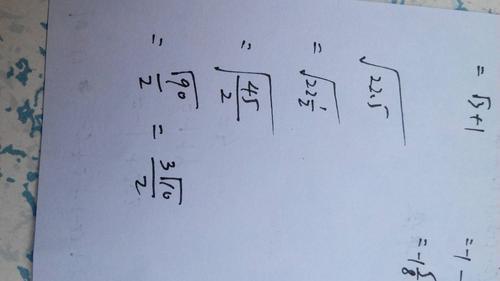 = √3 + 1
√22.5
= √22 1/2
= √(45/2)
= √90/2 = 3√10/2
= -1 -
= -1 5/8